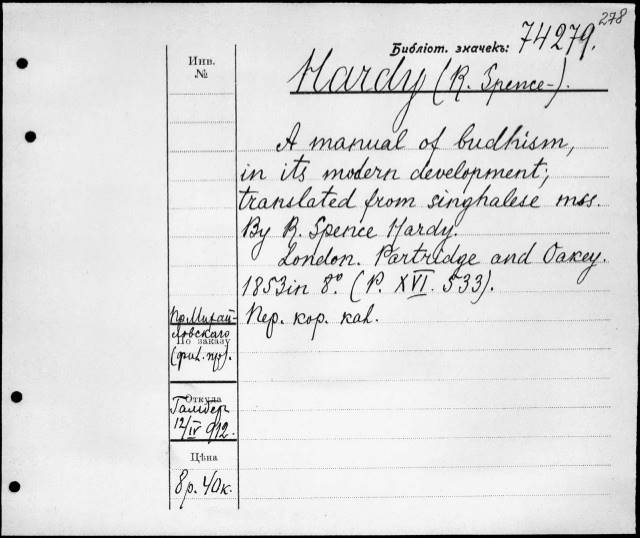 278
Библіот. значекъ: 74279.
Инв.
№
Hardy (R. Spence-).
A manual of budhism,
in its modern development;
translated from singhalese mss.
By R. Spence Hardy.
London. Partridge and Oakey.
1853 in 8º. (P. XVI. 533).
Пер. кор. кал.
Пр. Михай-
ловскаго
По заказу
Откуда
12/IV 912.
Цѣна
8 р. 40 к.